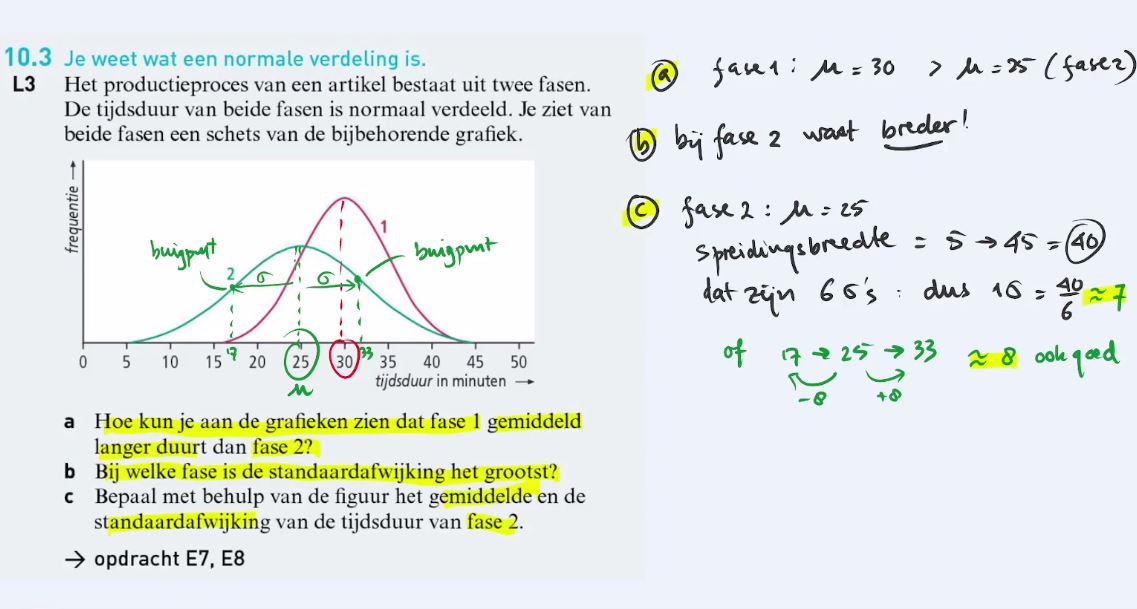 10.3 Je weet wat een normale verdeling is.
L3 Het productieproces van een artikel bestaat uit twee fasen.
De tijdsduur van beide fasen is normaal verdeeld. Je ziet van
beide fasen een schets van de bijbehorende grafiek.
frequentie →
buigpunt
2
σ
σ
1
buigpunt
0 5 10 15 17 20 25 30 33 35 40 45 50
μ
tijdsduur in minuten →
a Hoe kun je aan de grafieken zien dat fase 1 gemiddeld
langer duurt dan fase 2?
b Bij welke fase is de standaardafwijking het grootst?
c Bepaal met behulp van de figuur het gemiddelde en de
standaardafwijking van de tijdsduur van fase 2.
→ opdracht E7, E8
a fase 1 : μ = 30 > μ = 25 (fase 2)
b bij fase 2 want breder!
c fase 2 : μ = 25
spreidingsbreedte = 5 → 45 = 40
dat zijn 6 σ's : dus 1σ = 40/6 ≈ 7
of 17 → 25 → 33 ≈ 8 ook goed
-8 +8